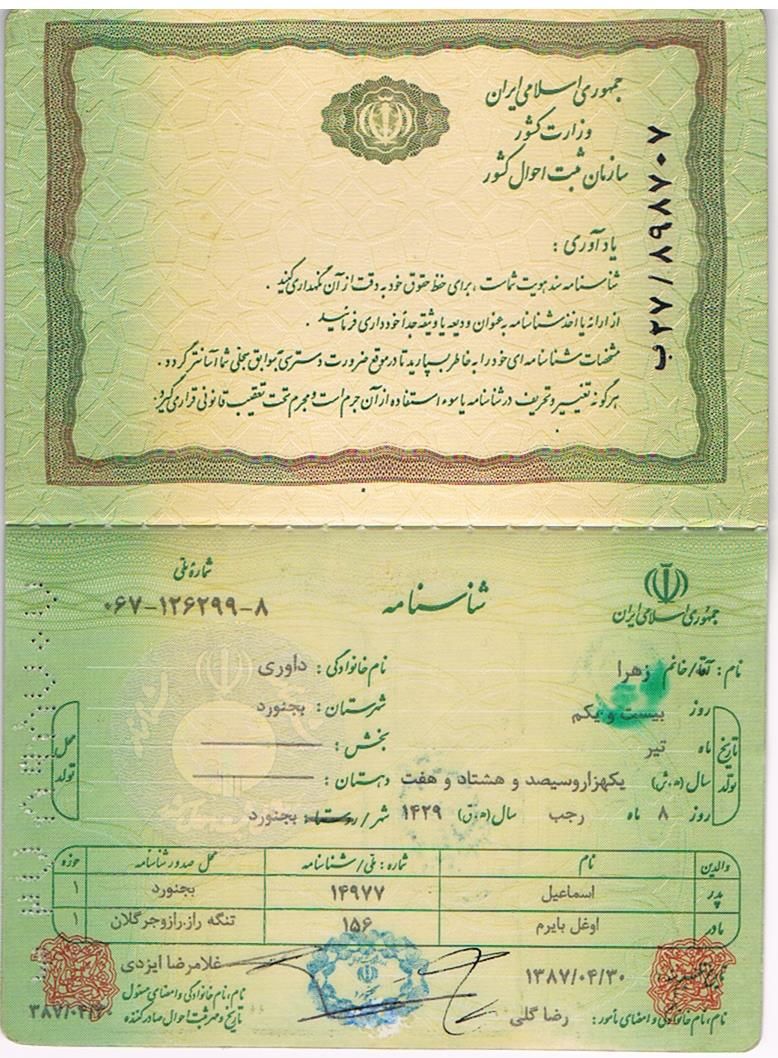 جمهوری اسلامی ایران
وزارت کشور
سازمان ثبت احوال کشور
ب۲۷/۸۹۸۷۰۷
یادآوری :
شناسنامه سند هویت شماست ، برای حفظ حقوق خود به دقت از آن نگهداری کنید .
از ارائه یا اخذ شناسنامه به عنوان ودیعه یا وثیقه جداً خودداری فرمائید .
مشخصات شناسنامه ای خود را به خاطر بسپارید تا در موقع ضرورت دسترسی به سوابق سجلی شما آسانتر گردد .
هرگونه تغییر و تحریف در شناسنامه یا سوء استفاده از آن جرم است و مجرم تحت تعقیب قانونی قرار می گیرد .
جمهوری اسلامی ایران
شناسنامه
شماره ملی
۰۶۷-۱۲۶۲۹۹-۸
نام : آقا/خانم زهرا
نام خانوادگی : داوری
تاریخ تولد
روز بیست و یکم
ماه تیر
سال (ه.ش) یکهزاروسیصد و هشتاد و هفت
روز ۸ ماه رجب سال (ه.ق) ۱۴۲۹
محل تولد
شهرستان : بجنورد
بخش :
دهستان :
شهر/روستا : بجنورد
والدین نام شماره : ملی/شناسنامه محل صدور شناسنامه حوزه
پدر اسماعیل ۱۴۹۷۷ بجنورد ۱
مادر اوغل بایرم ۱۵۶ تنگه راز.رازوجرگلان ۱
تاریخ تنظیم سند ۱۳۸۷/۰۴/۳۰
نام، نام خانوادگی و امضای مأمور : رضا گلی
غلامرضا ایزدی
نام، نام خانوادگی و امضای مسئول
تاریخ و مهر ثبت احوال صادر کننده
۳۸۷/۰۴/۳۰